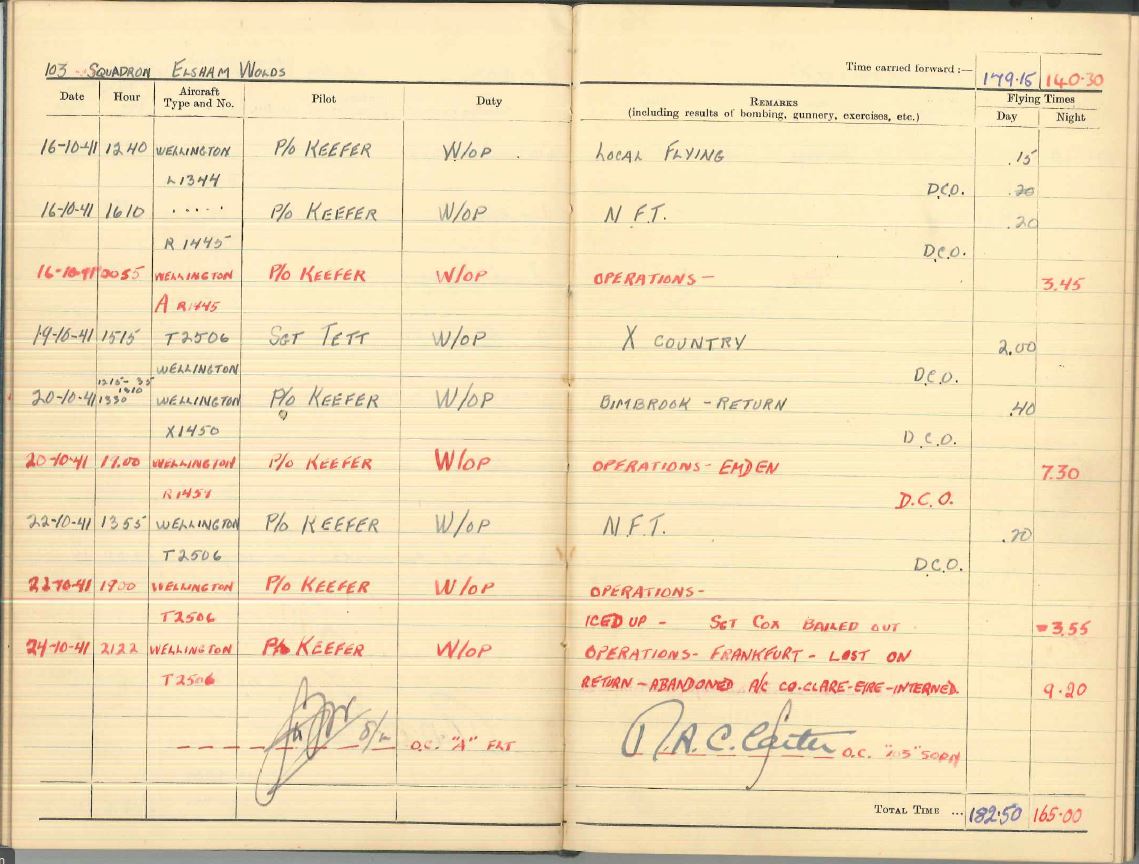 103 SQUADRON ELSHAM WOLDS
Time carried forward :— 179·15 140·30
Date Hour Aircraft Type and No. Pilot Duty REMARKS (including results of bombing, gunnery, exercises, etc.) Flying Times
Day Night
16-10-41 1240 WELLINGTON P/O KEEFER W/OP LOCAL FLYING .15
L1344 D.C.O. .20
16-10-41 1610 ..... P/O KEEFER W/OP N.F.T. .20
R1445 D.C.O.
16-10-41 0055 WELLINGTON P/O KEEFER W/OP OPERATIONS — 3.45
A R1445
19-10-41 1515 T2506 SGT TETT W/OP X COUNTRY 2.00
WELLINGTON D.C.O.
1215- 35
1310
20-10-41 1330 WELLINGTON P/O KEEFER W/OP BIMBROOK - RETURN .40
X1450 D.C.O.
20-10-41 WELLINGTON P/O KEEFER W/OP OPERATIONS - EMDEN 7.30
D.C.O.
22-10-41 1355 WELLINGTON P/O KEEFER W/OP N.F.T. .20
T2506 D.C.O.
22-10-41 1900 WELLINGTON P/O KEEFER W/OP OPERATIONS -
T2506 ICED UP - SGT COX BAILED OUT 3.55
24-10-41 2122 WELLINGTON P/O KEEFER W/OP OPERATIONS - FRANKFURT - LOST ON
T2506 RETURN - ABANDONED A/C CO.CLARE-EIRE-INTERNED. 9.20
S/L O.C. "A" FLT A.C. Carter O.C. "103" SQDN
TOTAL TIME ... 182·50 165·00